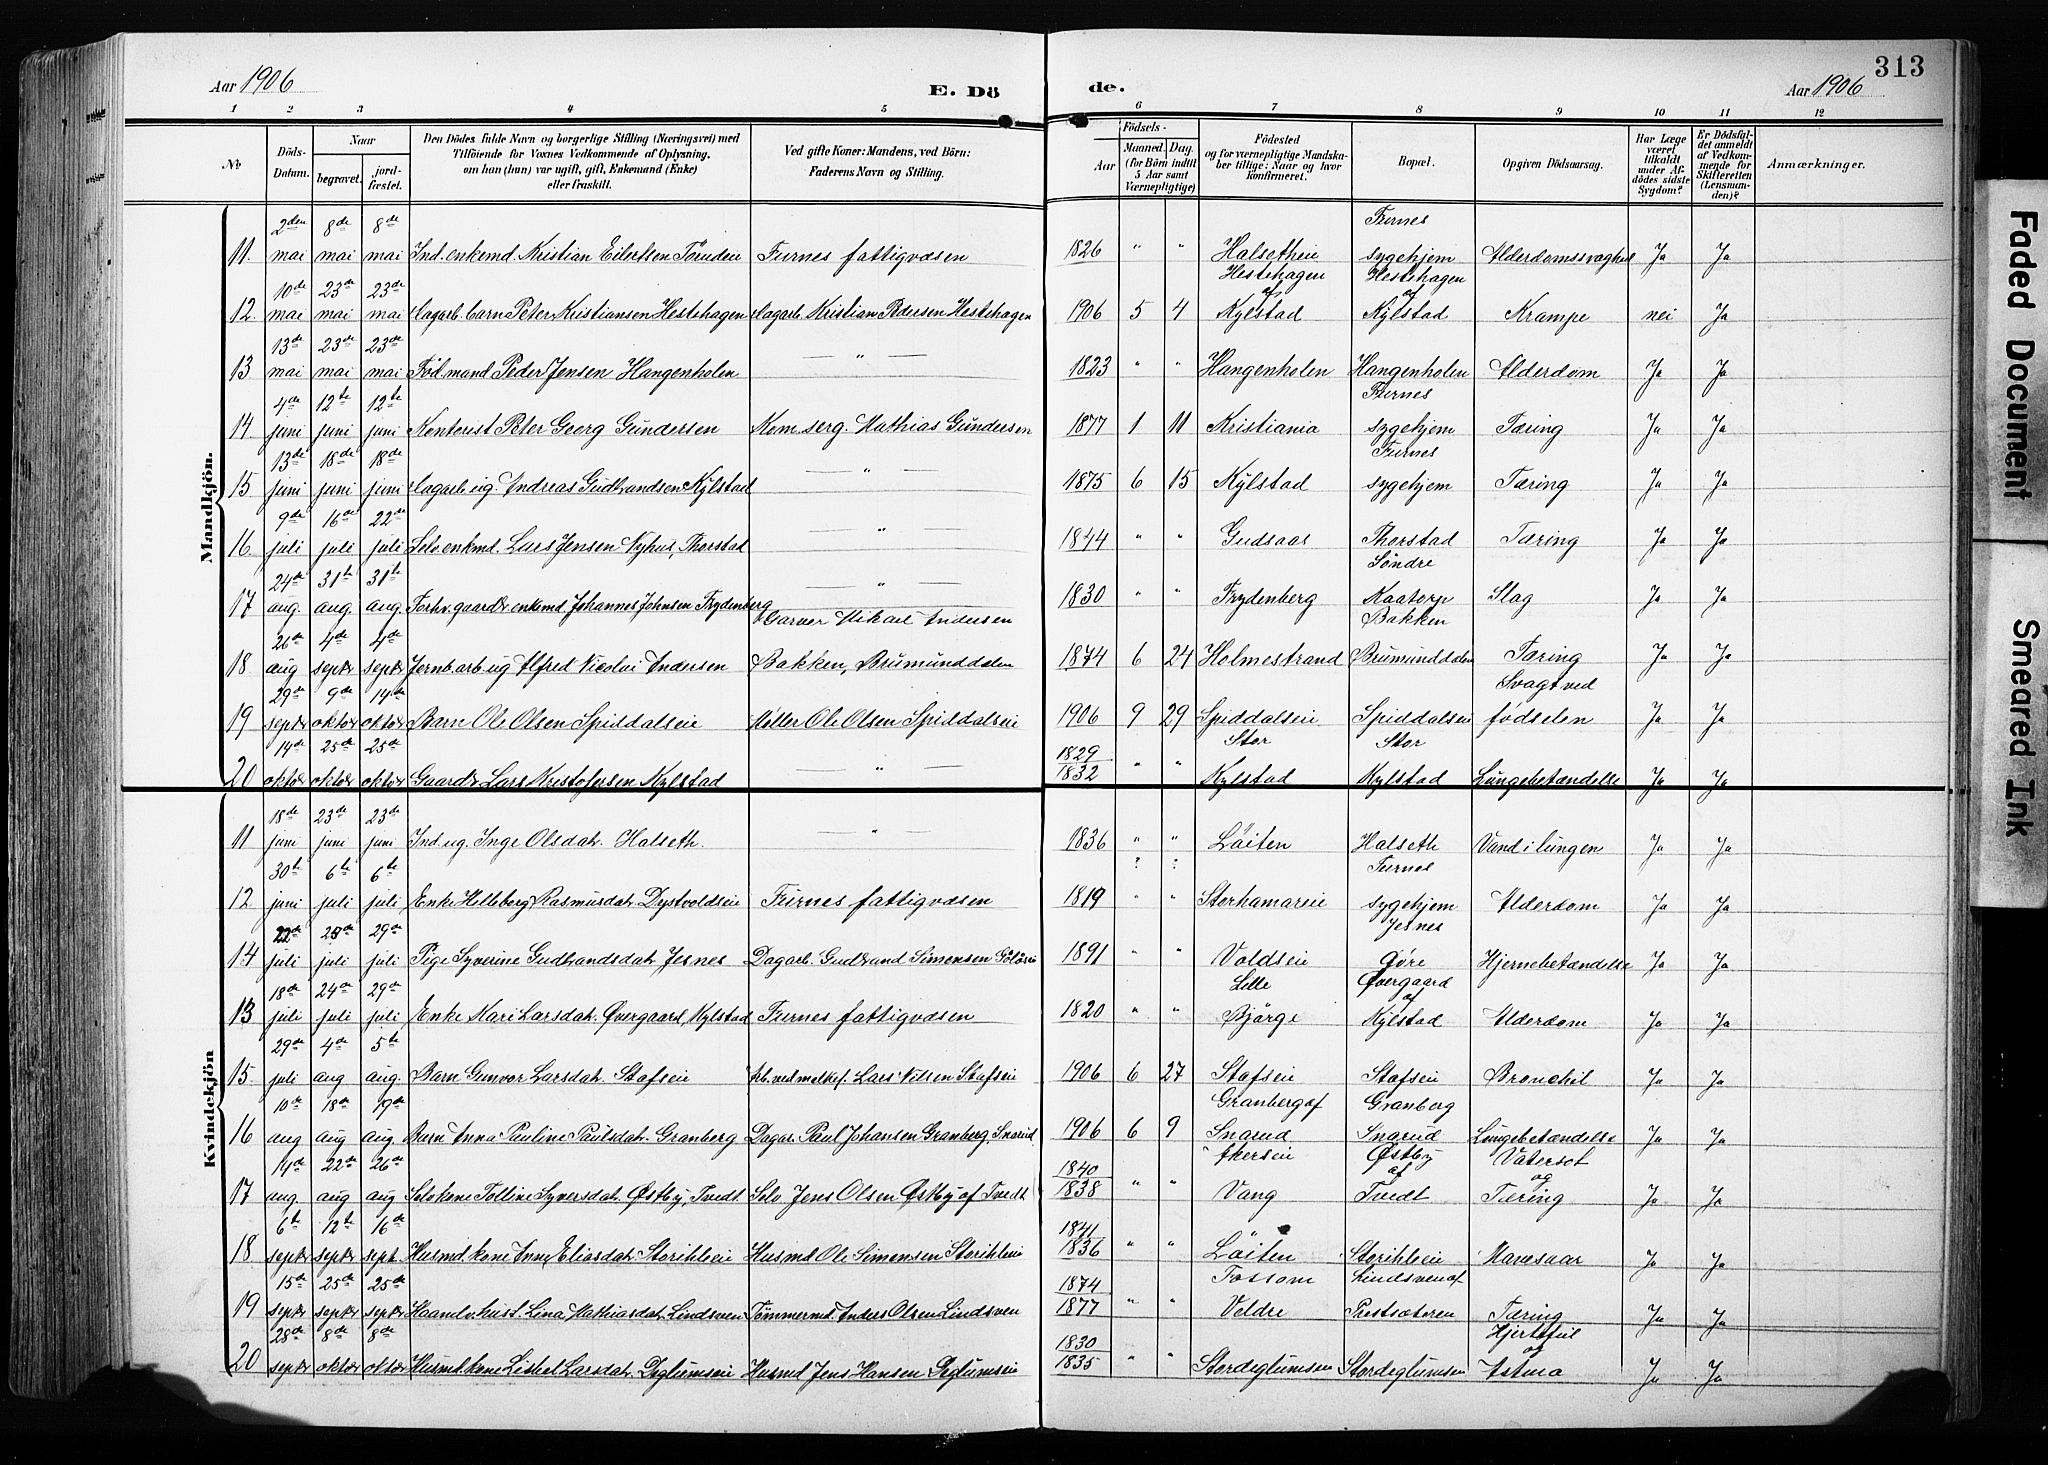 313
Aar 1906
E. Dö
de.
Aar 1906
1 2 3 4 5 6 7 8 9 10 11 12
No
Döds-Datum.
Naar
begravet.
jord-fæstet.
Den Dödes fulde Navn og borgerlige Stilling (Næringsvei) med
Tilföiende for Voxnes Vedkommende af Oplysning,
om han (hun) var ugift, gift, Enkemand (Enke)
eller fraskilt.
Ved gifte Koner: Mandens, ved Börn:
Faderens Navn og Stilling.
Födsels-
Aar
Maaned. Dag.
(for Börn indtil
5 Aar samt
Værnepligtige)
Födested
og for værnepligtige Mandska-
ber tillige: Naar og hvor
Konfirmeret.
Bopæl.
Opgiven Dödsaarsag.
Har Læge
været
tilkaldt
under Af-
dödes sidste
Sygdom?
Er Dödsfal-
det anmeldt
af Vedkom-
mende for
Skifteretten
(Lensman-
den)?
Anmærkninger.
Mandkjön.
11. 2den mai 8de mai 8de mai Ind. enkemd. Kristian Eilertsen Torudeie Furnes fattigvæsen 1826 " " Halsetheie Furnes sygehjem Alderdomssvaghed Ja Ja
12. 10de mai 23de mai 23de mai Dagarb. barn Peter Kristiansen Hestehagen Dagarb. Kristian Pedersen Hestehagen 1906 5 4 Hestehagen af Kylstad Hestehagen af Kylstad Krampe nei Ja
13 13de mai 23de mai 23de mai Föd. mand Peder Jensen Hangenholen — " — 1823 " " Hangenholen Hangenholen Alderdom Ja Ja
14 4de juni 12te juni 12te juni Kontorist Peter Georg Gundersen Kom. serg. Mathias Gundersen 1877 1 11 Kristiania Furnes sygehjem Tæring Ja Ja
15 13de juni 18de juni 18de juni Dagarb. ug. Andreas Gudbrandsen Kylstad — " — 1875 6 15 Kylstad Furnes sygehjem Tæring Ja Ja
16 9de juli 16de juli 22de juli Selv. enkmd. Lars Jensen Nyhus, Thorstad — " — 1844 " " Gudsaas Thorstad Tæring Ja Ja
17 24de aug. 31te aug. 31te aug. Forhv. gaardbr. enkmd Johannes Johnsen Frydenberg — " — 1830 " " Frydenberg Söndre Kaatorp Slag Ja Ja
18 26de aug 4de septbr 4de septbr Jernb. arb. ug Alfred Nicolai Andersen Garver Mikael Andersen Bakken, Brumunddalen 1874 6 24 Holmestrand Bakken Brumunddalen Tæring Ja Ja
19 29de septbr 9de oktbr 14de oktbr Barn Ole Olsen Spiddalseie Möller Ole Olsen Spiddalseie 1906 9 29 Spiddalseie Spiddalseie Svagt ved födselen Ja Ja
20 14de oktbr 25de oktbr 25de oktbr Gaardbr Lars Kristofersen Kylstad — " — 1829 1832 " " Stor Kylstad Stor Kylstad Lungebetændelse Ja Ja
Kvindekjön
11 18de juni 23de juni 23de juni Ind. ug. Inge Olsdatr. Halseth. — " — 1836 " " Löiten Halseth Vand i lungen Ja Ja
12. 30te juni 6te juli 6te juli Enke Helleborg Rasmusdatr. Dystvoldseie Furnes fattigvæsen 1819 ? " ? " Storhamareie Furnes sygehjem Alderdom Ja Ja
14 22de juli 28de juli 29de juli Pige Syverine Gudbrandsdatr. Jesnes Dagarb. Gudbrand Simensen 1891 " " Voldseie Jesnes övre Hjernebetændelse Ja Ja
13 18de juli 24de juli 29de juli Enke Mari Larsdatr. Övergaard, Kylstad Furnes fattigvæsen 1820 " " Lille Bjørge Övergaard af Kylstad Alderdom Ja Ja
15. 29de juli 4de aug 5te aug. Barn Gunvor Larsdatr. Stafseie Arb. ved melkef. Lars Nilsen Stafseie 1906 6 27 Stafseie Stafseie Bronchit Ja Ja
16 10de aug 18de aug 19de aug. Barn Anna Pauline Paulsdatr. Granberg Dagar. Paul Johansen Granberg, Snarud 1906 6 9 Granberg af Snarud Granberg Snarud Lungebetændelse Ja Ja
17 14de aug. 22de aug 26de aug Selv. kone Talline Syversdatr. Østby, Tvedt Selv. Jens Olsen Østby af Tvedt 1840 1838 " " Akerseie Vang Østby af Tvedt Vatersot og Tæring Ja Ja
18 6te septbr 12te septbr 16de sept. Husmd. kone Anne Eliasdatr. Storihleeie Husmd Ole Simensen Storihleeie 1841 1836 " " Löiten Storihleeie Mavesaar Ja Ja
19 15de septbr 25de septbr 25de septbr Haandv. hust. Lina Mathiasdatr. Lindsveen Tömmermd. Anders Olsen Lindsven 1874 1877 " " Fossom Veldre Lindsven af Prestsæteren Tæring Ja Ja
20 28de septbr 8de oktbr 8de oktbr Husmd. kone Lisbet Larsdatr. Deglumseie Husmd Jens Hansen Deglumseie 1830 1835 " " Stordeglumsen Stordeglumsen Hjertefeil og Astma Ja Ja
Faded Document
Smeared Ink